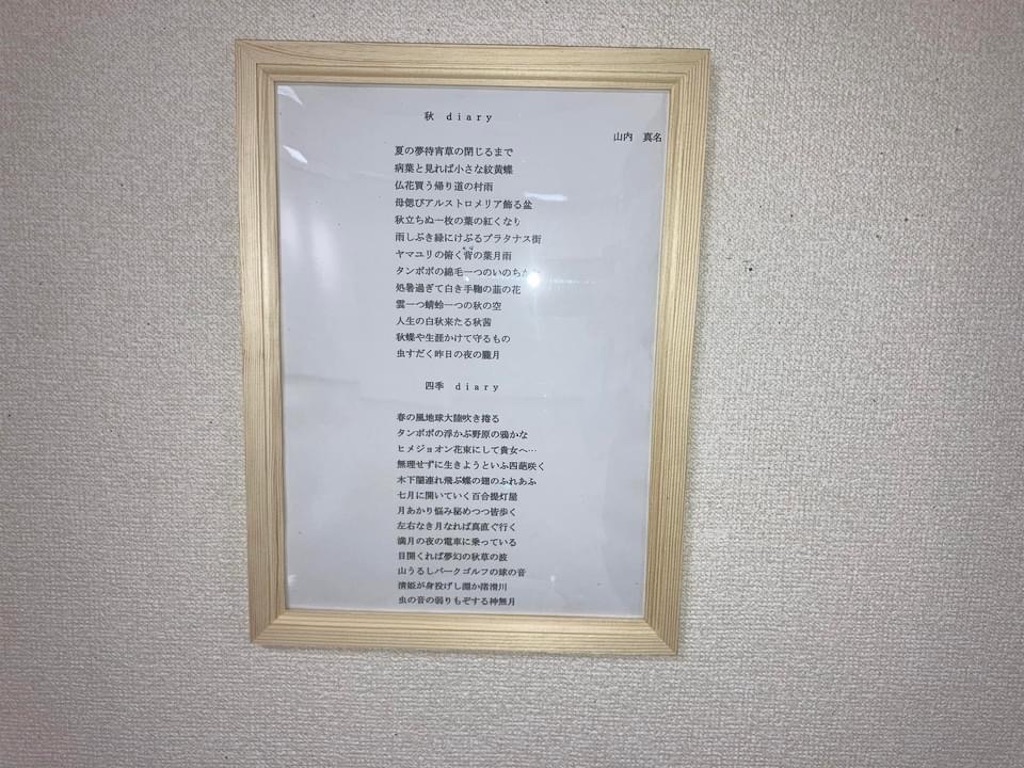 秋 diary
山内 真名
夏の夢待宵草の閉じるまで
病葉と見れば小さな紋黄蝶
仏花買う帰り道の村雨
母偲びアルストロメリア飾る盆
秋立ちぬ一枚の葉の紅くなり
雨しぶき緑にけぶるプラタナス街
ヤマユリの俯く背の葉月雨
タンポポの綿毛一つのいのち
処暑過ぎて白き手鞠の韮の花
雲一つ蜻蛉一つの秋の空
人生の白秋来たる秋茜
秋蝶や生涯かけて守るもの
虫すだく昨日の夜の朧月
四季 diary
春の風地球大陸吹き捲る
タンポポの浮かぶ野原の鴉かな
ヒメジョオン花束にして貴女へ…
無理せずに生きようといふ四葩咲く
木下闇連れ飛ぶ蝶の翅のふれあふ
七月に開いていく百合提灯屋
月あかり悩み秘めつつ皆歩く
左右なき月なれば真直ぐ行く
満月の夜の電車に乗っている
目開くれば夢幻の秋草の波
山うるしパークゴルフの球の音
清姫が身投げし淵か渚滑川
虫の音の弱りもぞする神無月